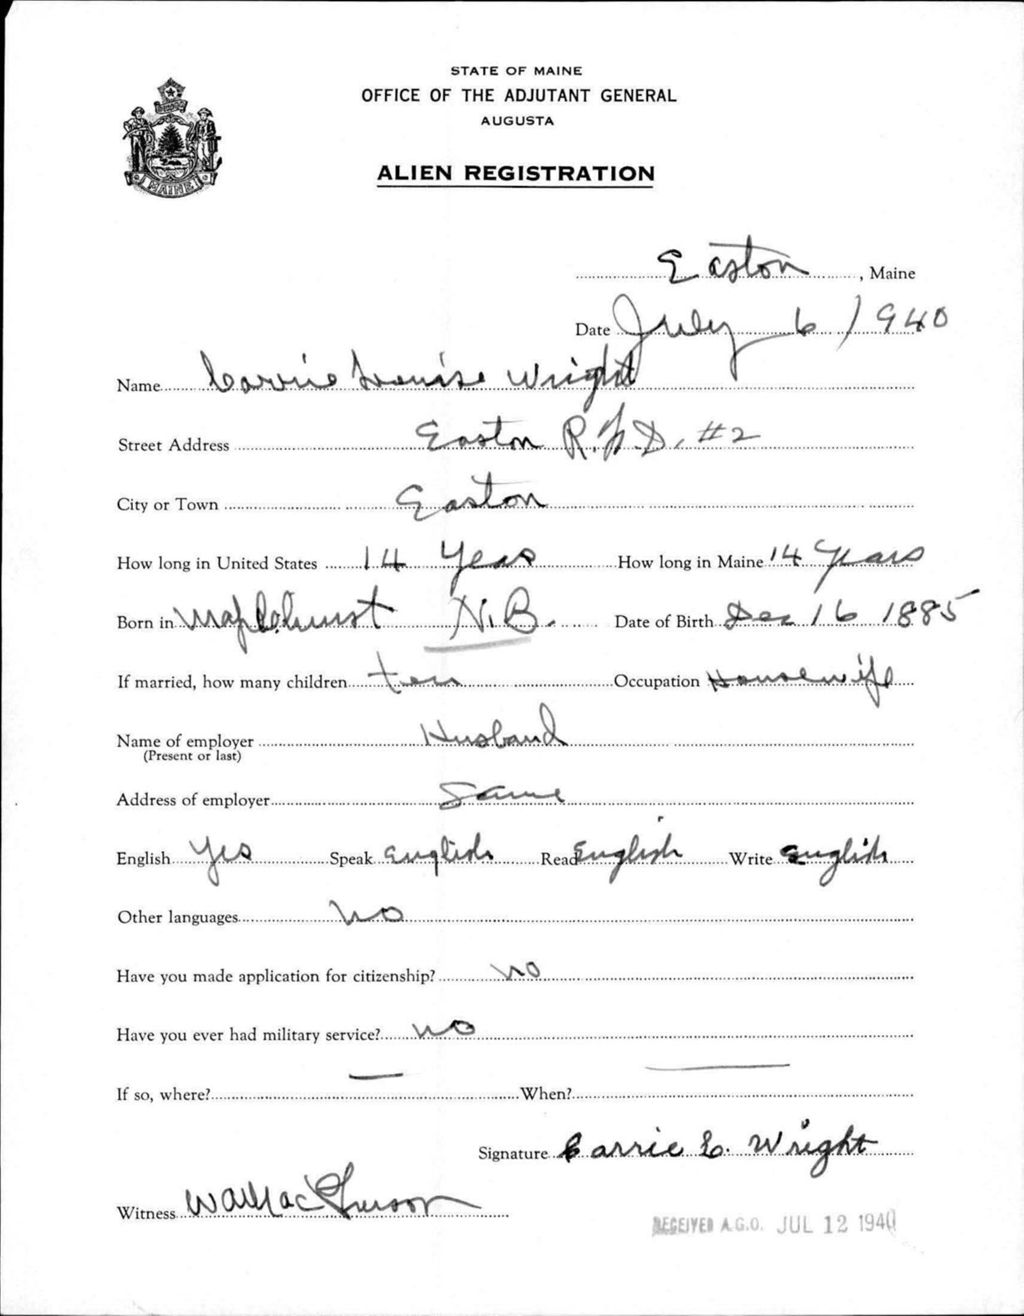 STATE OF MAINE
OFFICE OF THE ADJUTANT GENERAL
AUGUSTA
ALIEN REGISTRATION
Easton, Maine
Date July 6 1940
Name Carrie Louise Wright
Street Address Easton R.F.D. #2
City or Town Easton
How long in United States 14 Years How long in Maine 14 Years
Born in Maplehurst N.B. Date of Birth Dec 16 1885
If married, how many children ten Occupation Housewife
Name of employer Husband
(Present or last)
Address of employer Same
English Yes Speak English Read English Write English
Other languages No
Have you made application for citizenship? no
Have you ever had military service? no
If so, where? — When? —
Signature Carrie L. Wright
Witness
RECEIVED A.G.O. JUL 12 1940
MAINE